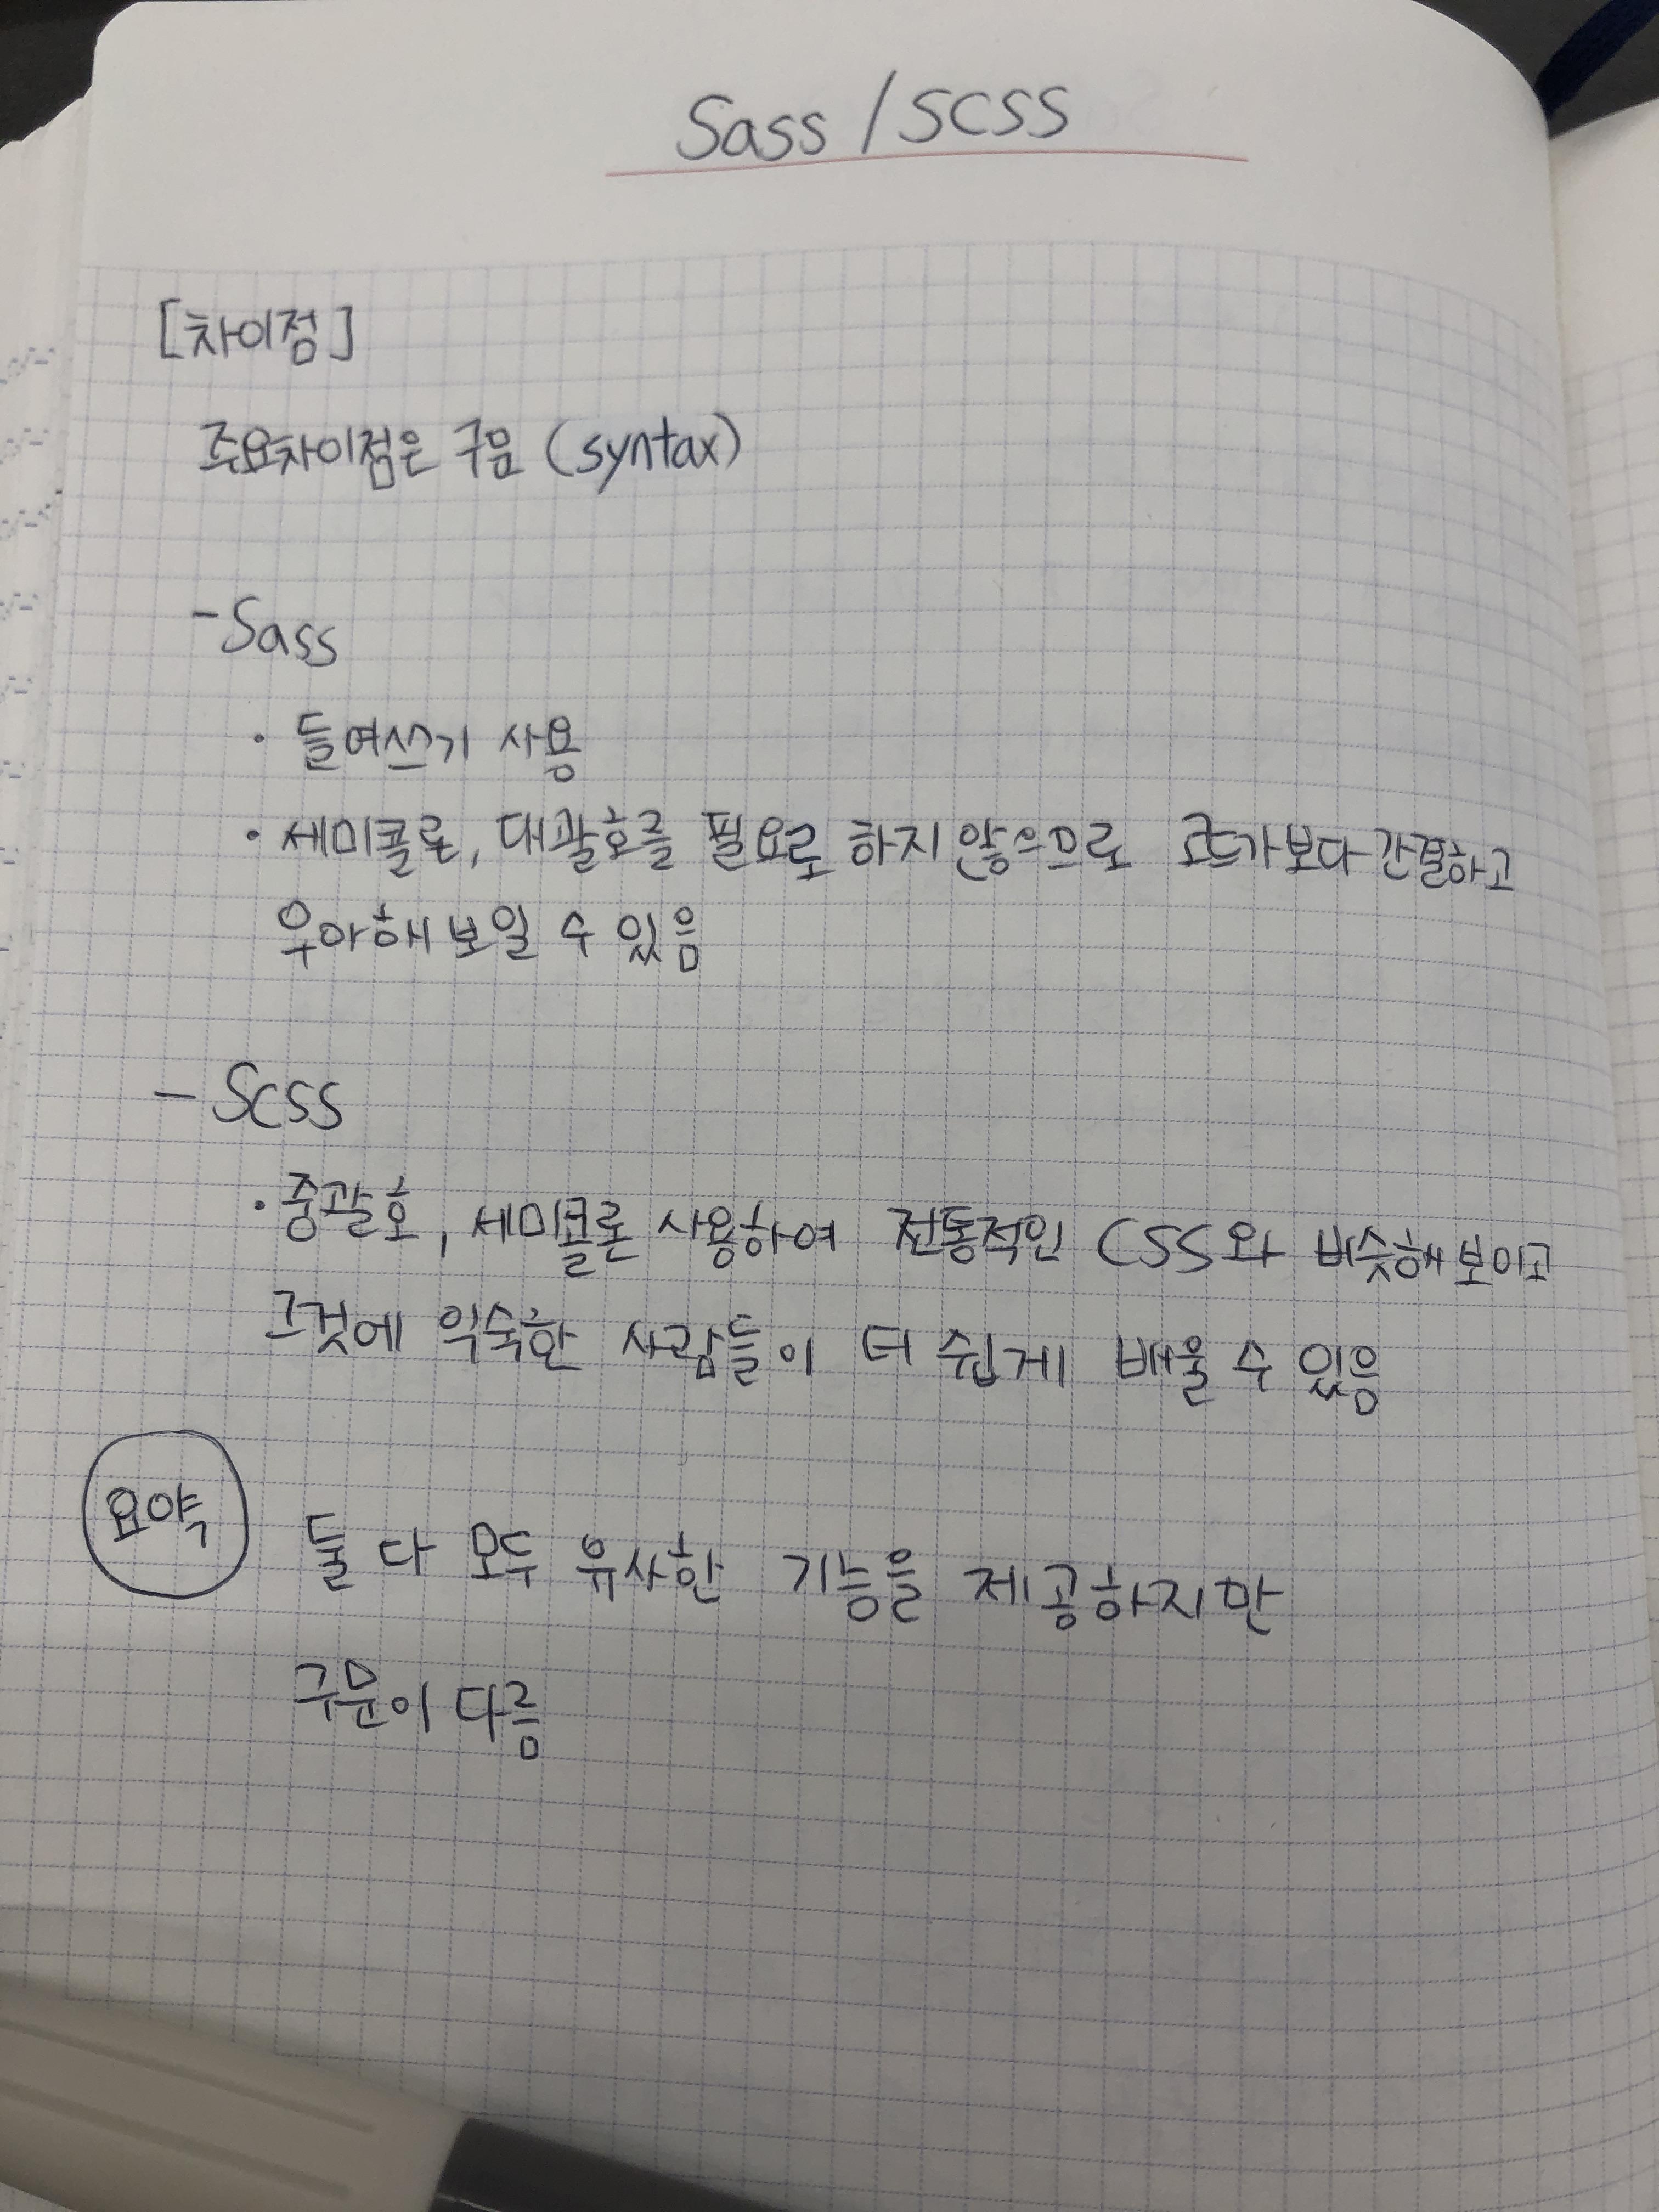 Sass / SCSS
[차이점]
주요차이점은 구문 (syntax)
- Sass
· 들여쓰기 사용
· 세미콜론, 대괄호를 필요로 하지 않으므로 코드가 보다 간결하고
우아해 보일 수 있음
- SCSS
· 중괄호, 세미콜론 사용하여 전통적인 CSS와 비슷해 보이고
그것에 익숙한 사람들이 더 쉽게 배울 수 있음
요약 둘 다 모두 유사한 기능을 제공하지만
구문이 다름